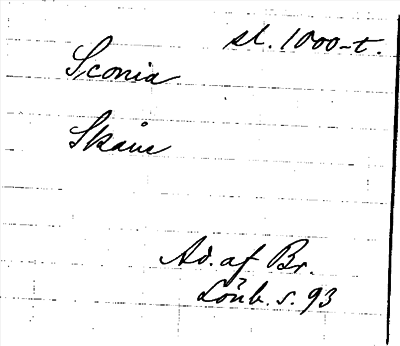 sl. 1000-t.
Sconia
Skåne
Ad. af Br.
Lönb. s. 93